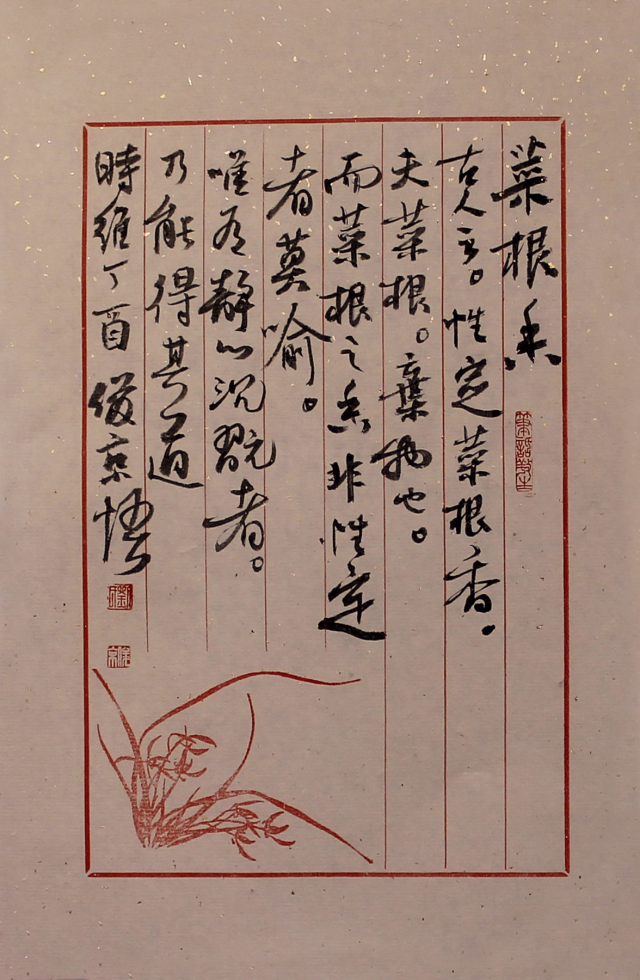 菜根香
古人云。性定菜根香。
夫菜根。棄物也。
而菜根之香非性定
者莫喻。
唯有靜心沉翫者。
乃能得其道
時維丁酉俊京悟